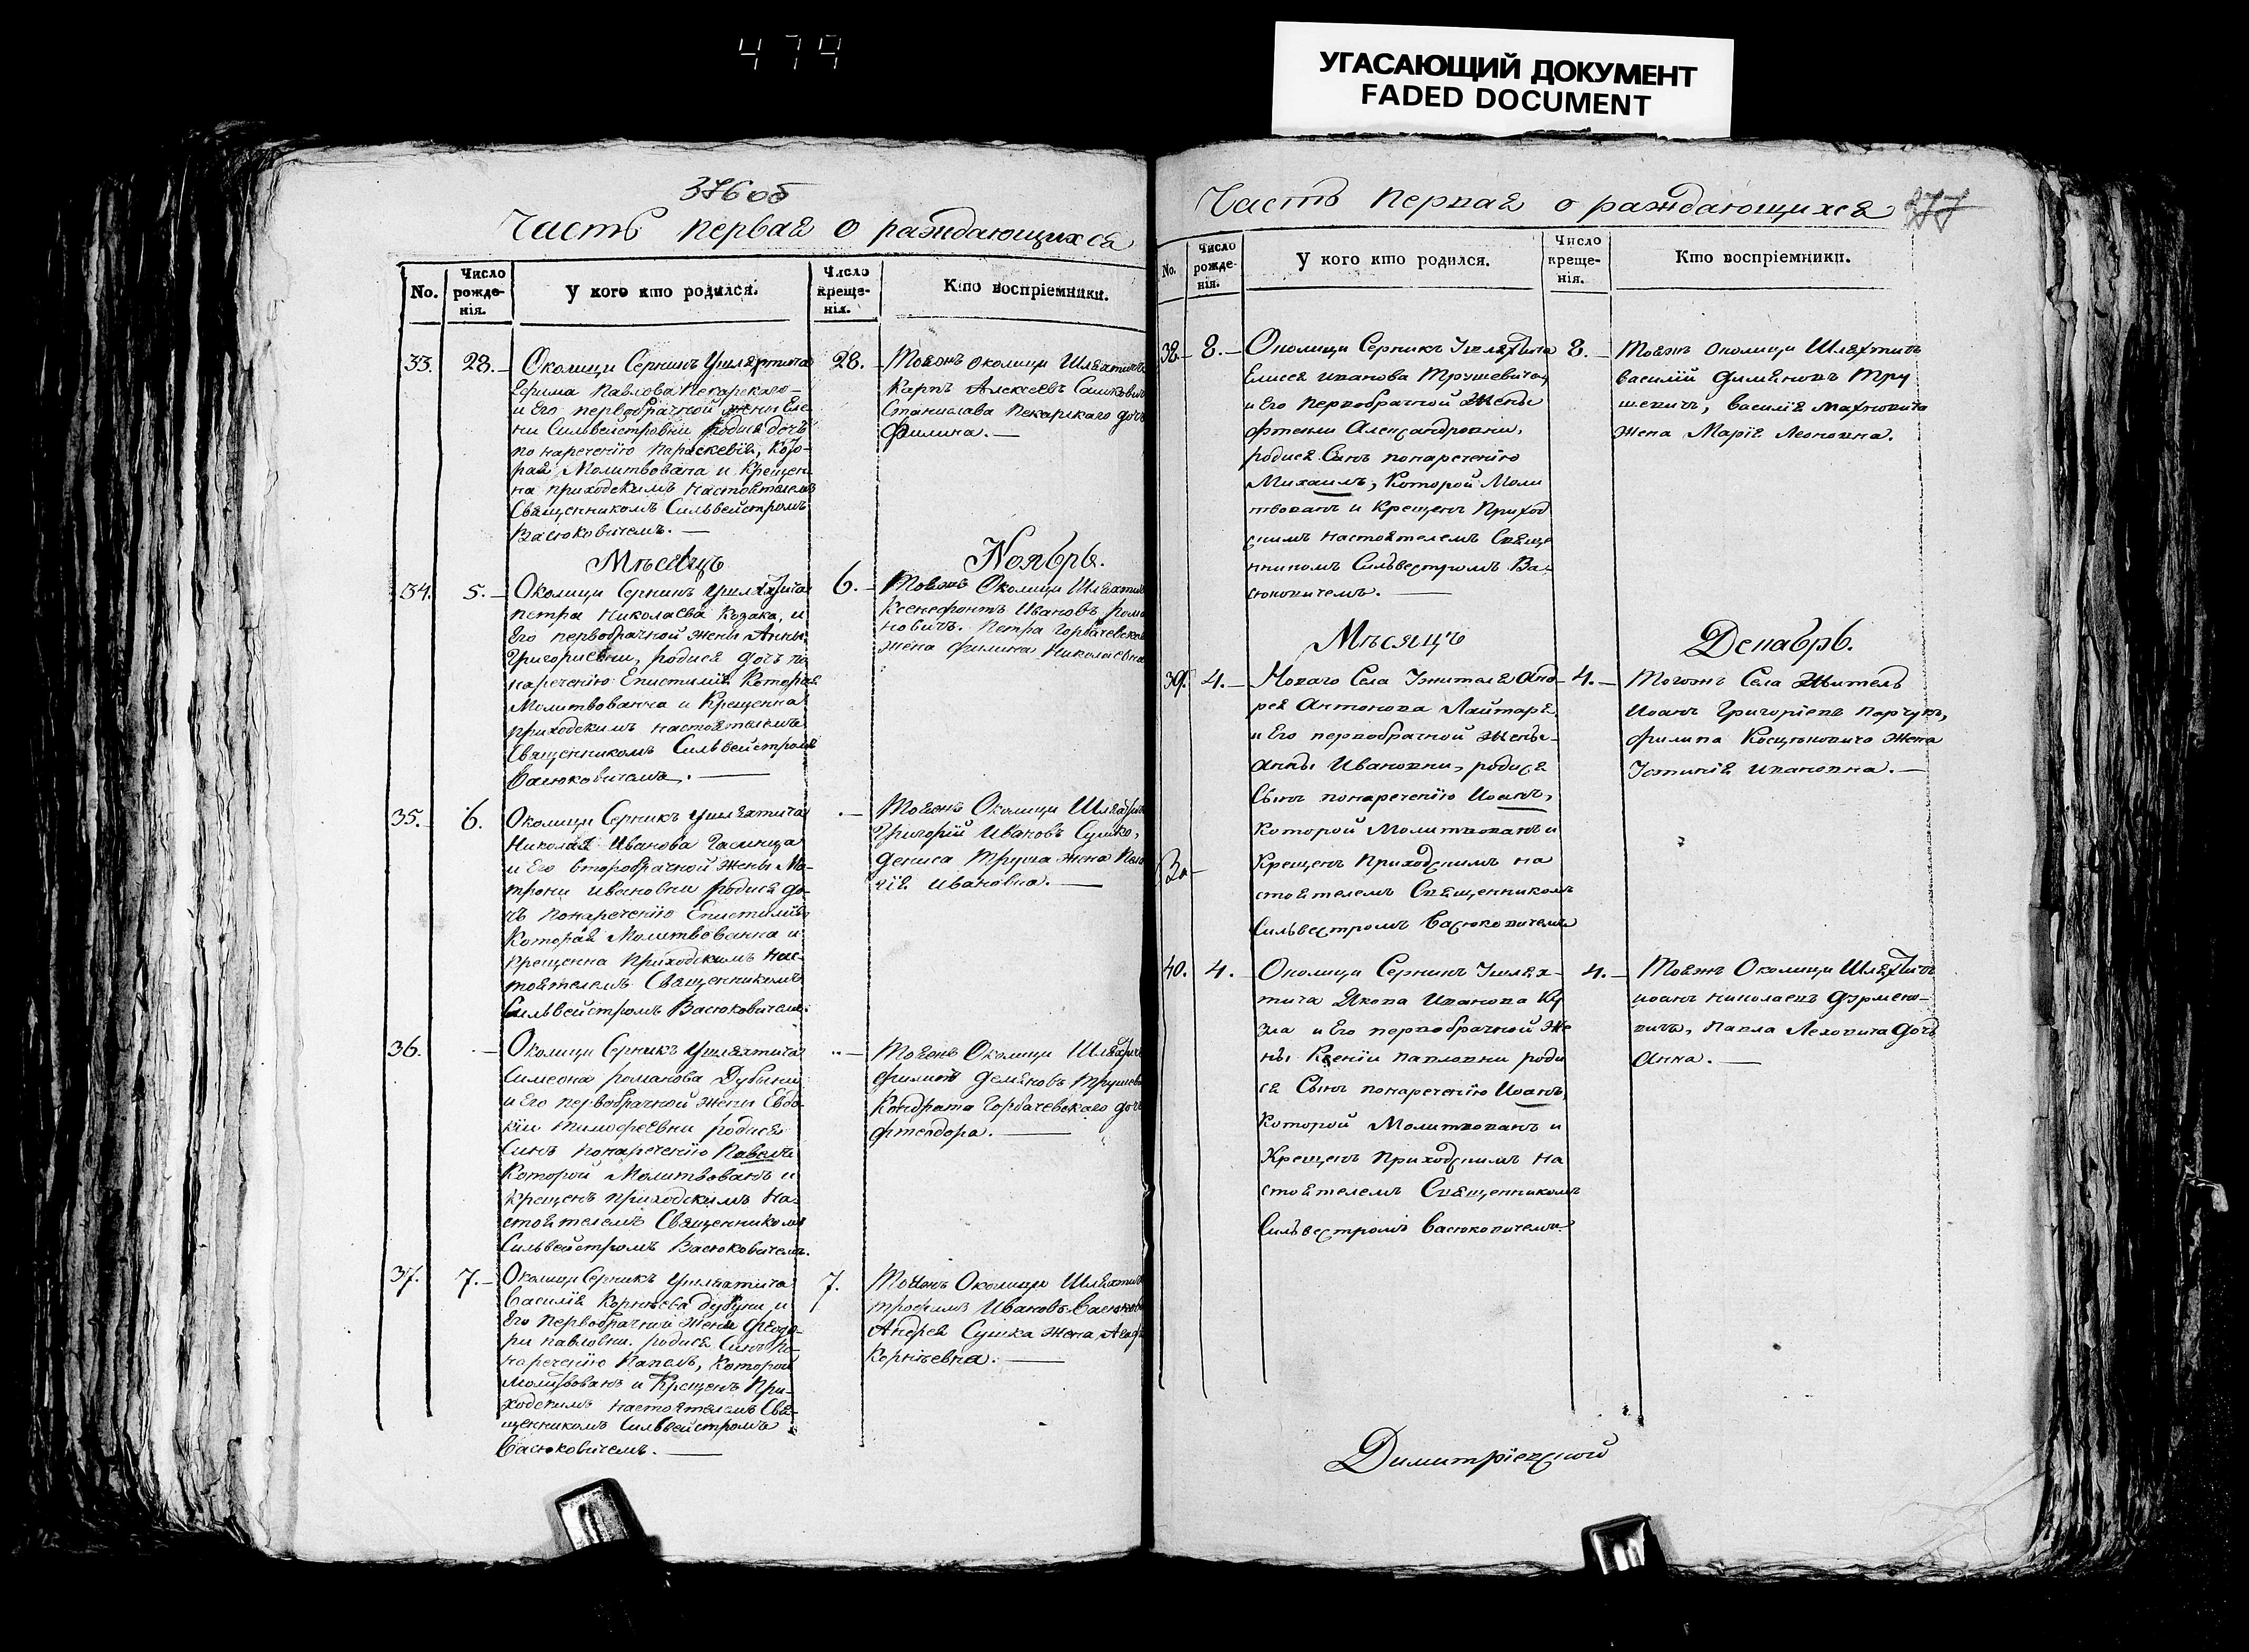 479
УГАСАЮЩИЙ ДОКУМЕНТ
FADED DOCUMENT
376об
Часть первая о раждающихся
No.
Число рожде-нія.
У кого кто родился.
Число креще-нія.
Кто воспріемники.
33. 28.
Околици Серникъ Ушляхтича
Ефима Павлова Пекарского
и Его первобрачной жены Еле
ни Сильвейстровни родися дочъ
по нареченію Параскевія, Кото-
рая Молитвована и Крещен
на приходскимъ Настоятелемъ
Священникомъ Сильвейстромъ
Васюковичемъ.
28.
Тояжъ околици Шляхтичъ
Карпъ Алексеевъ
Станислава Пекарскаго дочъ
Филина.
Мѣсяцъ Ноябрь.
34. 5.
Околици Серникъ Ушляхтича
петра Николаева Козака, и
Его первобрачной жены Анны
Григориевни, родися дочъ по
нареченію Епистимія Которая
Молитвованна и Крещенна
приходскимъ настоятелемъ
Священникомъ Сильвейстромъ
Васюковичемъ.
6.
Тояжъ Околици Шляхтичъ
Ксенефонтъ Ивановъ Рома
новичъ. Петра Горбачевскаго
жена Филина Николаевна
35. 6.
Околици Серникъ Ушляхтича
Николая Иванова
и Его второбрачной жены Ма-
трони Ивановни родися до-
чъ понареченію Епистимія
Которая Молитвованна и
Крещенна Приходскимъ Нас-
тоятелемъ Священникомъ
Сильвейстромъ Васюковичемъ.
Тояжъ Околици Шляхтичъ
Григорій Ивановъ Сушко,
Дениса Труша жена Пела
гія Ивановна.
36.
Околици Серникъ Ушляхтича
Симеона романова Дубини
и Его первобрачной жены Евдо
кіи Тимофеевни родися
Синъ понареченію Павелъ
Которой Молитвованъ и
Крещенъ приходскимъ На-
стоятелемъ Священникомъ
Сильвейстромъ Васюковичемъ.
Тояжъ Околици Шляхтичъ
Филипъ Демяновъ Трушевичъ
Кондрата Горбачевскаго дочъ
Фтеодора.
37. 7.
Околици Серникъ Ушляхтича
Василія Корнѣева Дубуни и
Его Первобрачной жени Феодо-
ри павловни, родися Синъ По-
нареченію Павелъ, Которой
Молитвованъ и Крещенъ При-
ходскимъ настоятелемъ Свя-
щенникомъ Сильвейстромъ
Васюковичемъ.
7.
Тояжъ Околици Шляхтичъ
трофимъ Ивановъ
Андрея Сушка жена
Корнѣевна.
Часть Первая о раждающихся
377
No.
Число рожде-нія.
У кого кто родился.
Число креще-нія.
Кто воспріемники.
38. 8.
Околици Серникъ Ушляхтича
Елисея иванова Трушевича
и Его Первобрачной Жены
Фтекли Александровни,
родися Синъ понареченію
Михаилъ, Которой Моли
твованъ и Крещенъ Приход
скимъ Настоятелемъ Свяще
нникомъ Сильвестромъ Ва-
сюковичемъ.
8.
Тояжъ Околици Шляхтичъ
василій Димяновъ Тру
шевичъ, Василія Махновича
Жена Марія Леоновна.
Мѣсяцъ Декабрь.
39. 4.
Новаго Села Ужителя Анд
рея Антонова Лайтара
и Его первобрачной Жены
Анны Ивановни, родися
Сынъ понареченію Иоанъ,
Которой Молитвованъ и
Крещенъ Приходскимъ на
стоятелемъ Священникомъ
Сильвестромъ Васюковичемъ
4.
Тогожъ Села Житель
Иоанъ Григоріевъ Парчукъ,
Филипа Косцѣновича Жена
Устинія Ивановна.
40. 4.
Околици Серникъ Ушлях-
тича Якова Иванова Ку
зла и Его первобрачной Же
ны Ксеніи павловни роди
ся Сынъ понареченію Иоанъ,
Которой Молитвованъ и
Крещенъ Приходскимъ На
стоятелемъ Священникомъ
Сильвестромъ Васюковичемъ
4.
Тояжъ Околици Шляхтичъ
иоанъ Николаевъ Фурмено-
вичъ, Павла Леховича Дочъ
Анна.
Димитріевской